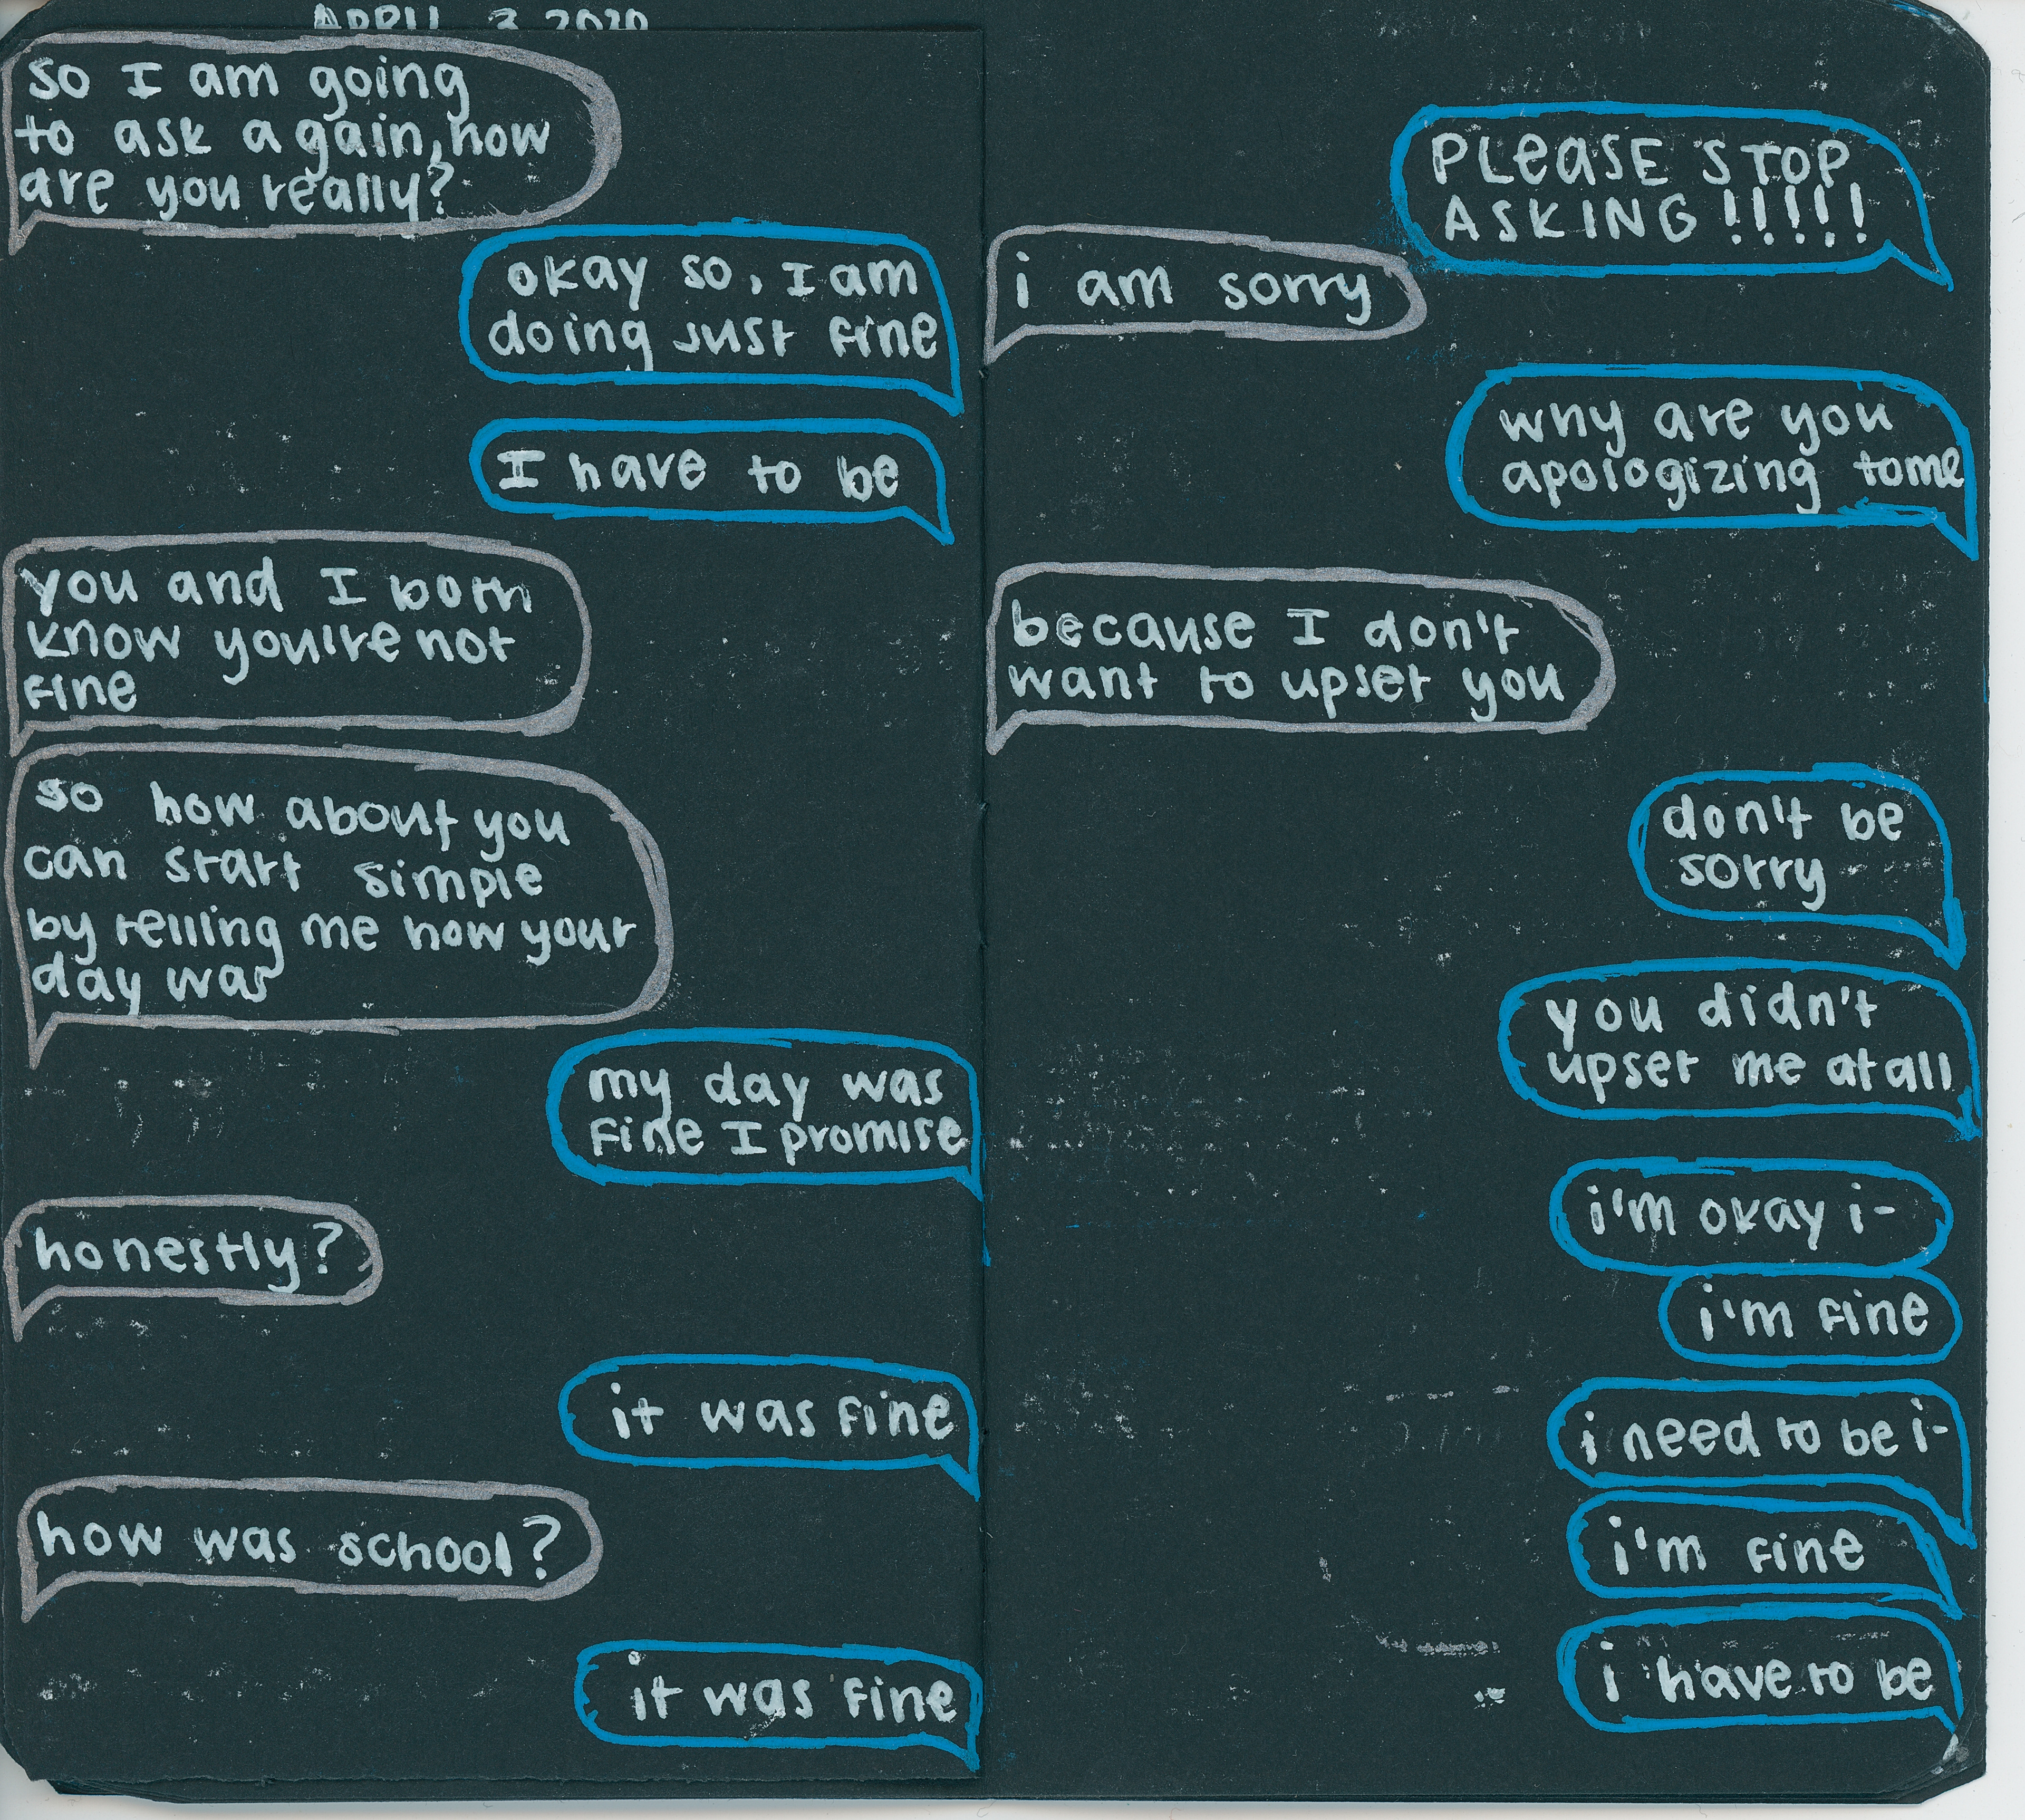 APRIL 3 2020
so I am going
to ask again, how
are you really?
okay so, I am
doing just fine
I have to be
you and I both
know you're not
fine
so how about you
can start simple
by telling me how your
day was
my day was
fine I promise
honestly?
it was fine
how was school?
it was fine
PLEASE STOP
ASKING!!!!!
i am sorry
why are you
apologizing to me
because I don't
want to upset you
don't be
sorry
you didn't
upset me at all
i'm okay i-
i'm fine
i need to be i-
i'm fine
i have to be